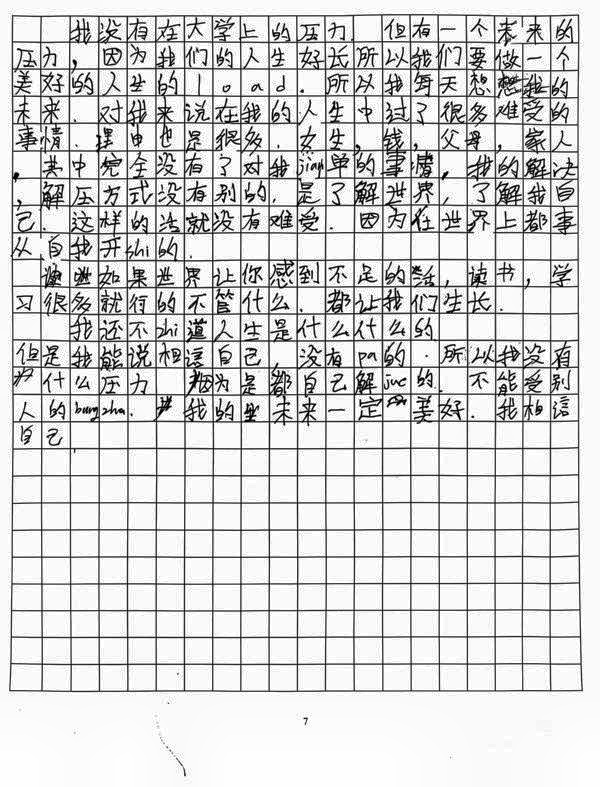 我没有在大学上的压力. 但有一个未来的
压力, 因为我们的人生好长所以我们要做一个
美好的人生的load. 所以我每天想想我的
未来. 对我来说在我的人生中过了很多难受的
事情. 理由也是很多. 女生, 钱, 父母, 家人
, 其中完全没有了对我jian单的事情. 我的解决
, 解压方式没有别的. 是了解世界, 了解我自
己. 这样的话就没有难受. 因为在世界上都事
从自我开shi的.
如果世界让你感到不足的话, 读书, 学
习很多就行的不管什么. 都让我们生长.
我还不zhi道人生是什么什么的
但是我能说相信自己, 没有pa的. 所以我没有
什么压力 因为是都自己解jue的. 不能受别
人的bangzhu. 我的未来一定美好. 我相信
自己.
7